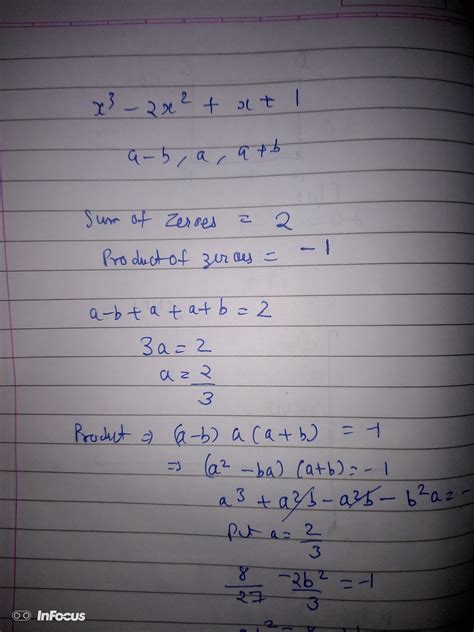 x³ - 2x² + x + 1
a-b, a, a+b
Sum of zeroes = 2
Product of zeroes = -1
a-b+a+a+b=2
3a=2
a=2/3
Product ⇒ (a-b) a (a+b) = -1
⇒ (a² - ba) (a+b) = -1
a³ + a²b - a²b - b²a = -
Put a = 2/3
8/27 - 2b²/3 = -1
InFocus